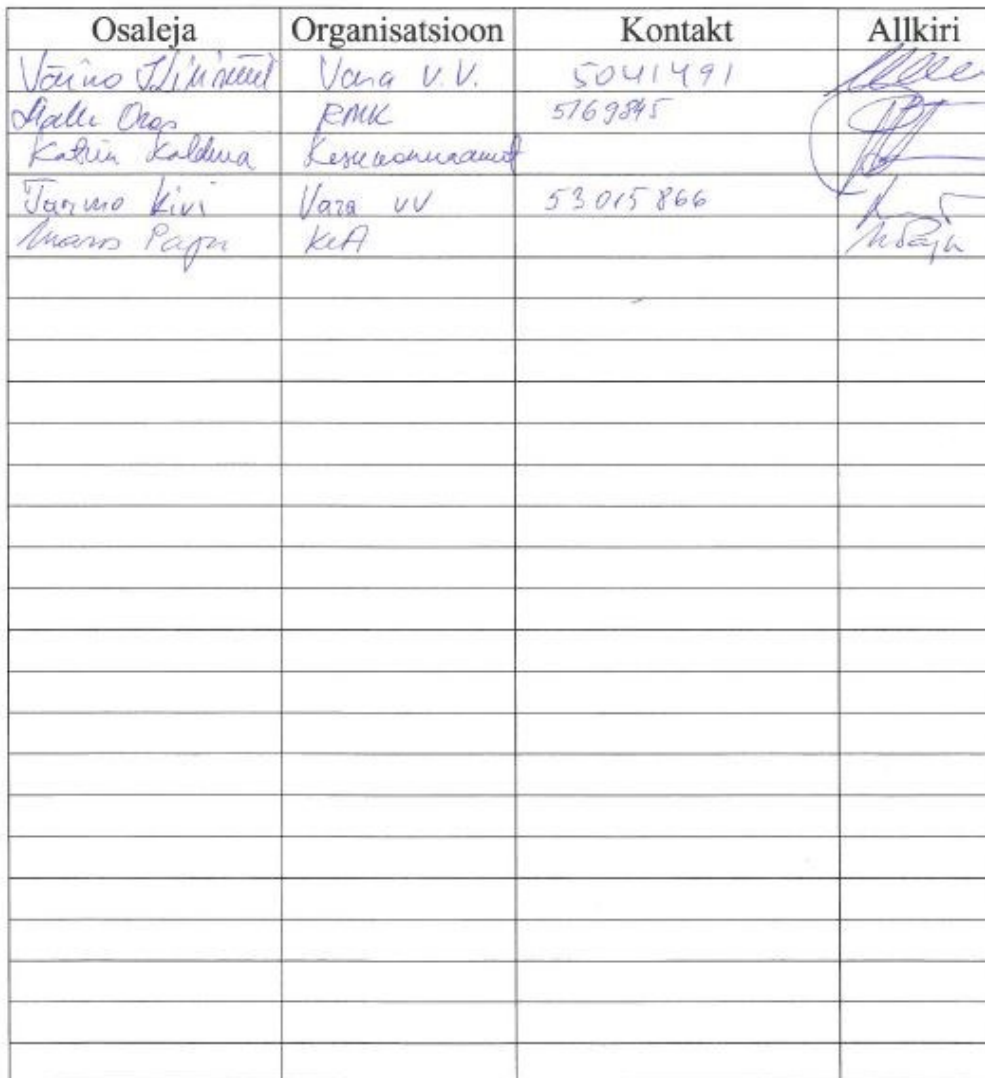 Osaleja Organisatsioon Kontakt Allkiri
Väino Vara V.V. 5041491
RMK 5169845
Katrin Kaldma Keskkonnaamet
Tarmo Kivi Vara VV 53015866
KeA